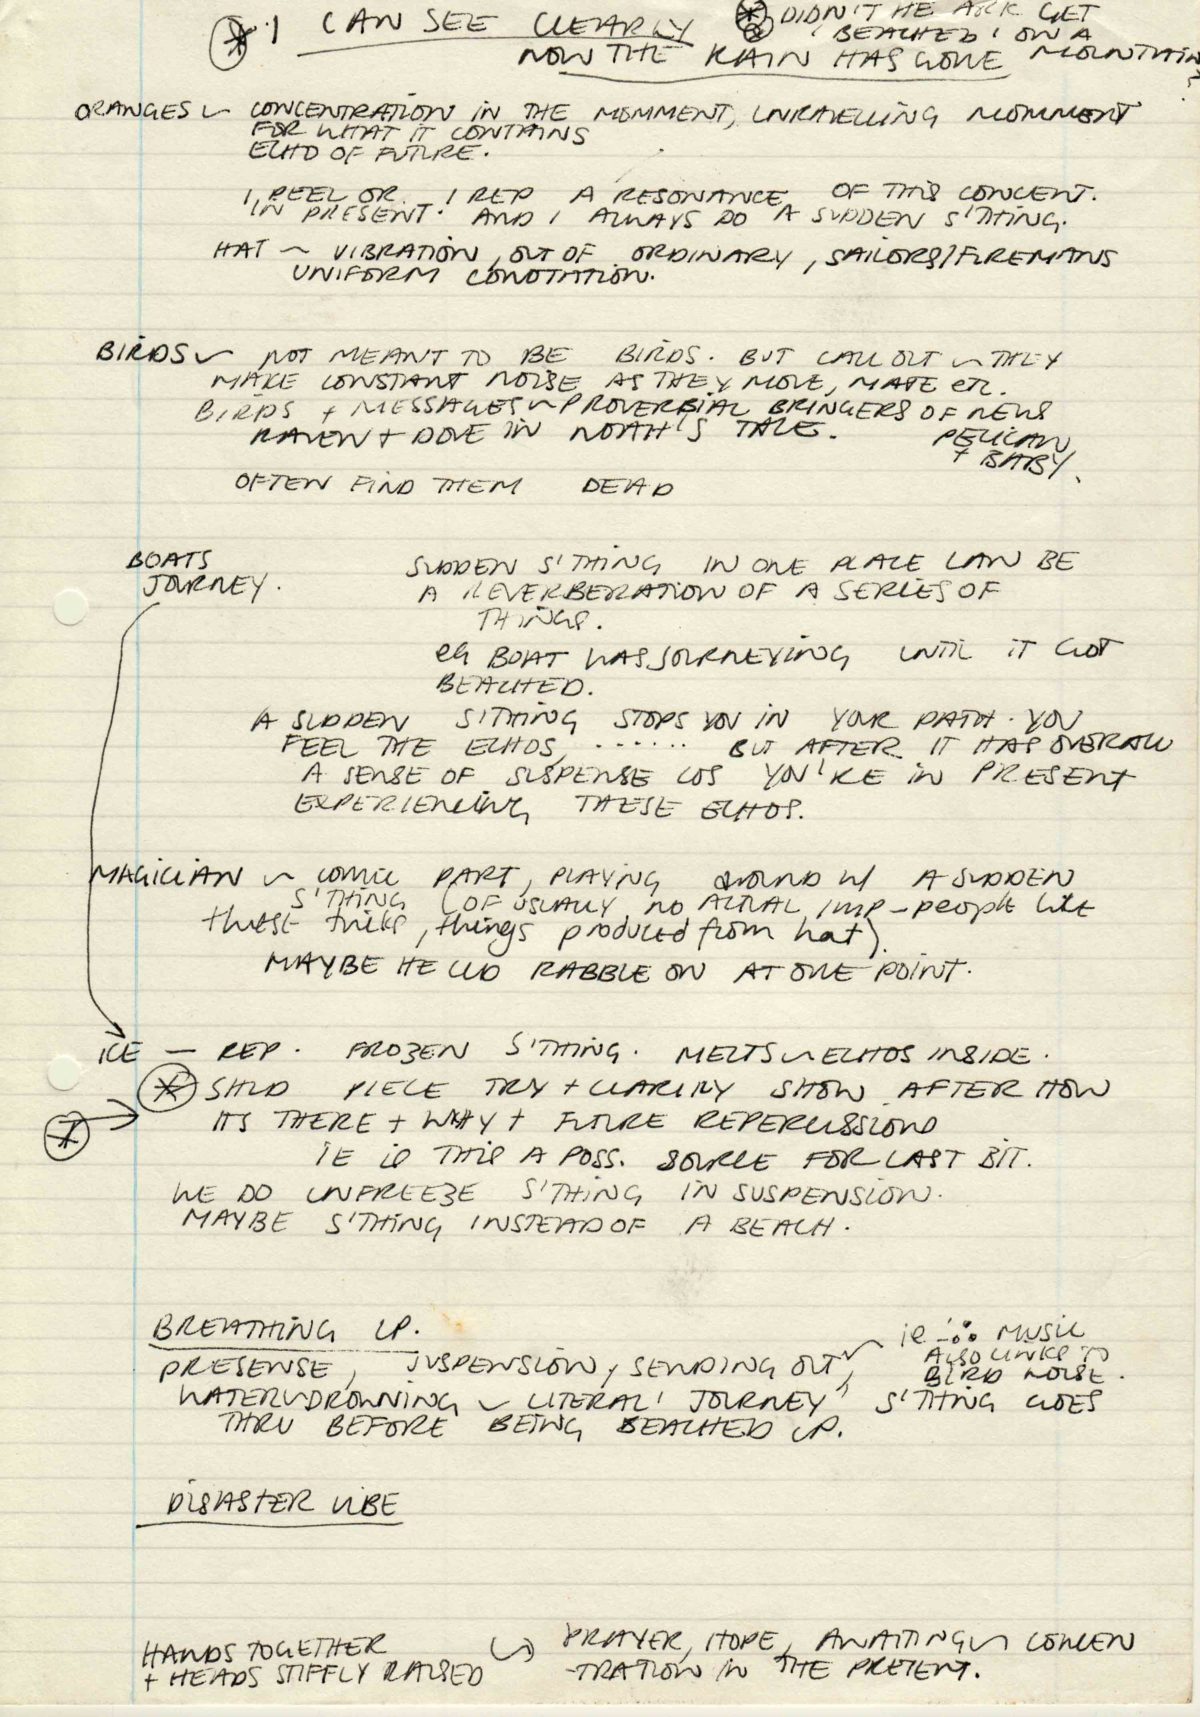 * 1 CAN SEE CLEARLY
NOW THE RAIN HAS GONE
* DIDN'T HE ARK GET
'BEACHED' ON A
MOUNTAIN
?
ORANGES ~ CONCENTRATION IN THE MOMMENT, UNRAVELLING MOMMENT
FOR WHAT IT CONTAINS
ECHO OF FUTURE.
I, PEEL OR I REP A RESONANCE OF THIS CONCENT.
IN PRESENT. AND I ALWAYS DO A SUDDEN S'THING.
HAT ~ VIBRATION, OUT OF ORDINARY, SAILORS/FIREMANS
UNIFORM CONOTATION.
BIRDS ~ NOT MEANT TO BE BIRDS. BUT CALL OUT ~ THEY
MAKE CONSTANT NOISE AS THEY MOVE, MATE ETC.
BIRDS + MESSAGES ~ PROVERBIAL BRINGERS OF NEWS
RAVEN + DOVE IN NOAH'S TALE.
PELICAN
+ BABY.
OFTEN FIND THEM DEAD
BOATS
JOURNEY.
SUDDEN S'THING IN ONE PLACE CAN BE
A REVERBERATION OF A SERIES OF
THINGS.
EG BOAT WAS JOURNEYING UNTIL IT GOT
BEACHED.
A SUDDEN S'THING STOPS YOU IN YOUR PATH. YOU
FEEL THE ECHOS, ...... BUT AFTER IT HAS OVERALL
A SENSE OF SUSPENSE COS YOU'RE IN PRESENT
EXPERIENCING THESE ECHOS.
MAGICIAN ~ COMIC PART, PLAYING AROUND W/ A SUDDEN
S'THING (OF USUALLY NO ACTUAL IMP - people like
these tricks, things produced from hat).
MAYBE HE CLD RABBLE ON AT ONE POINT.
ICE — REP. FROZEN S'THING. MELTS ~ ECHOS INSIDE.
* SHLD PIECE TRY + CLARIFY SHOW AFTER HOW
* ITS THERE + WHY + FUTURE REPERCUSSIONS
IE IS THIS A POSS. SOURCE FOR LAST BIT.
WE DO UNFREEZE S'THING IN SUSPENSION.
MAYBE S'THING INSTEAD OF A BEACH.
BREATHING UP.
PRESENSE, SUSPENSION, SENDING OUT ~ ie MUSIC
ALSO LINKS TO
BIRD NOISE.
WATER ~ DROWNING ~ LITERAL 'JOURNEY' S'THING GOES
THRU BEFORE BEING BEACHED UP.
DISASTER VIBE
HANDS TOGETHER
+ HEADS STIFFLY RAISED
PRAYER, HOPE, AWAITING ~ CONCEN
-TRATION IN THE PRETENT.